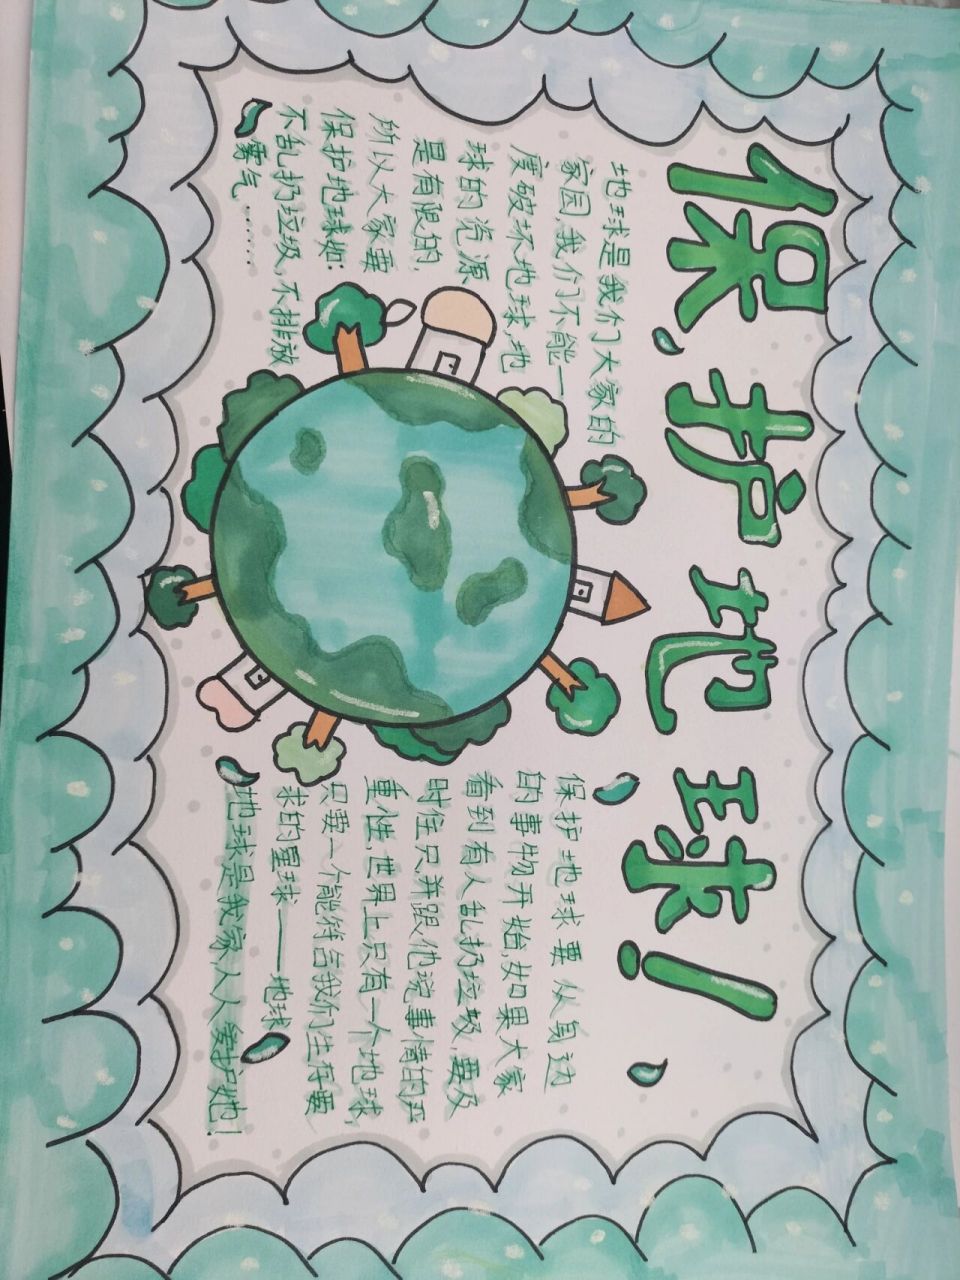 保护地球!
地球是我们大家的
家园,我们不能一
度破坏地球,地
球的资源
是有限的,
所以大家要
保护地球如:
不乱扔垃圾,不排放
雾气……
保护地球要从身边
的事物开始,如果大家
看到有人乱扔垃圾,要及
时住只,并跟他说事情的严
重性,世界上只有一个地球,
只要一个能符合我们生存要
求的星球——地球
地球是我家人人爱护她!